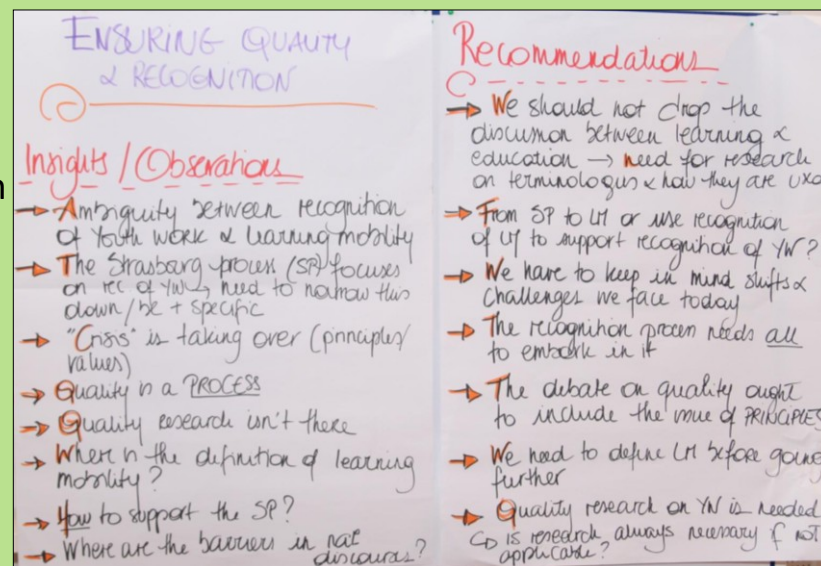 n
ENSURING QUALITY
& RECOGNITION
Insights / Observations
→ Ambiguity between recognition
of Youth work & learning mobility
→ The Strasbourg process (SP) focuses
on rec of YW → need to narrow this
down / be + specific
→ "Crisis" is taking over (principles/
values)
→ Quality is a PROCESS
→ Quality research isn't there
→ Where is the definition of learning
mobility?
→ How to support the SP?
→ Where are the barriers in nat
discourses?
Recommendations
→ We should not drop the
discussion between learning &
education → need for research
on terminologies & how they are used
→ From SP to LM or use recognition
of LM to support recognition of YW?
→ We have to keep in mind shifts &
challenges we face today
→ The recognition process needs all
to embark in it
→ The debate on quality ought
to include the issue of PRINCIPLES
→ We need to define LM before going
further
→ Quality research on YW is needed
↳ is research always necessary if not
applicable?